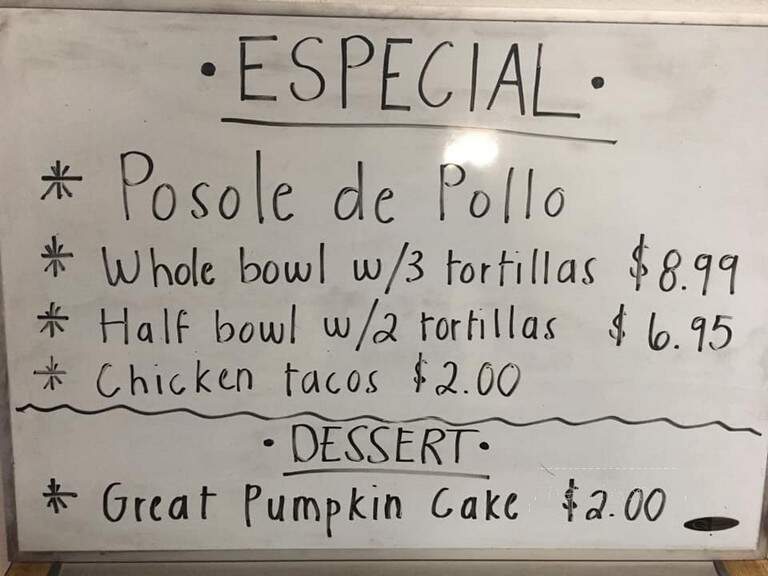 • ESPECIAL •
* Posole de Pollo
* Whole bowl w/3 tortillas $8.99
* Half bowl w/2 tortillas $6.95
* Chicken tacos $2.00
• DESSERT •
* Great Pumpkin Cake $2.00